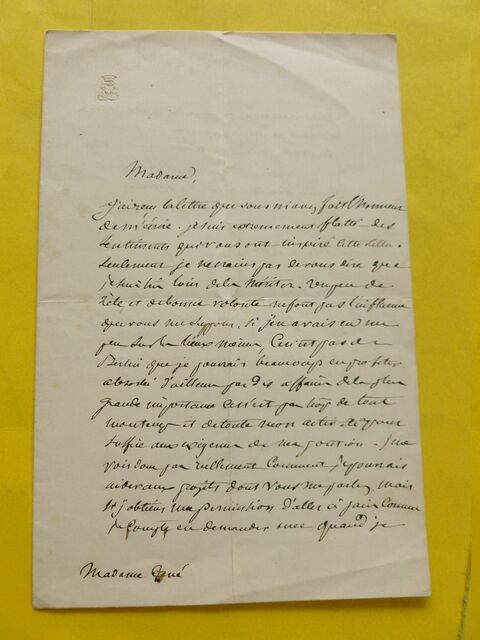 Madame,
j'ai reçu la lettre que vous m'avez fait l'honneur
de m'écrire. je suis extrêmement flatté des
sentiments qui vous ont inspiré cette lettre.
seulement je ne crains pas de vous dire que
je suis bien loin de la mériter. Un peu de
zèle, et de bonne volonté ne font pas l'influence
que vous me supposez. Si j'en avais eu un
peu sur les lieux même, ce n'est pas de
Berlin que je pourrais beaucoup en profiter
absorbé d'ailleurs par des affaires de la plus
grande importance ce n'est pas trop de tout
mon temps et de toute mon activité pour
suffire aux exigences de ma position. je ne
vois donc pas réellement comment je pourrais
aider aux projets dont vous me parlez. Mais
si j'obtiens ma permission d'aller à Paris comme
je compte en demander une quand je
Madame